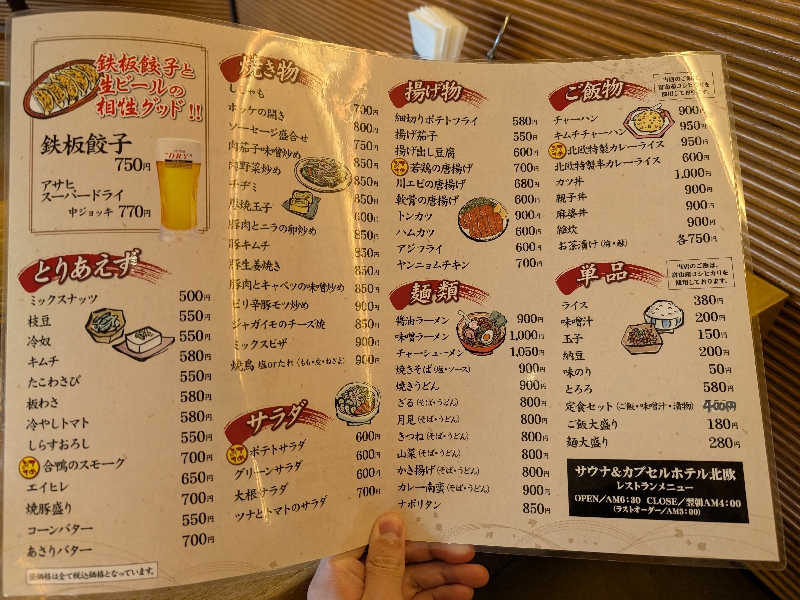 鉄板餃子と
生ビールの
相性グッド!!
鉄板餃子
750円
アサヒ
スーパードライ
中ジョッキ 770円
とりあえず
ミックスナッツ 500円
枝豆 550円
冷奴 550円
キムチ 580円
たこわさび 550円
板わさ 580円
冷やしトマト 580円
しらすおろし 550円
合鴨のスモーク 700円
エイヒレ 650円
焼豚盛り 700円
コーンバター 550円
あさりバター 700円
※価格は全て税込価格となっています。
焼き物
ししゃも 700円
ホッケの開き 800円
ソーセージ盛合せ 750円
肉茄子味噌炒め 850円
肉野菜炒め
チヂミ
豚肉とニラの卵炒め
豚キムチ
豚生姜焼き
豚肉とキャベツの味噌炒め 850円
ピリ辛豚モツ炒め 900円
ジャガイモのチーズ焼 850円
ミックスピザ 900円
焼鳥 塩orたれ(もも・皮・ねぎま) 900円
サラダ
ポテトサラダ 600円
グリーンサラダ 600円
大根サラダ 600円
ツナとトマトのサラダ 700円
揚げ物
細切りポテトフライ 580円
揚げ茄子 550円
揚げ出し豆腐 600円
若鶏の唐揚げ 700円
川エビの唐揚げ 680円
軟骨の唐揚げ 600円
トンカツ 900円
ハムカツ 600円
アジフライ 600円
ヤンニョムチキン 700円
麺類
醤油ラーメン 900円
味噌ラーメン 1,000円
チャーシューメン 1,050円
焼きそば(塩・ソース) 900円
焼きうどん 900円
ざる(そば・うどん) 800円
月見(そば・うどん) 800円
きつね(そば・うどん) 800円
山菜(そば・うどん) 800円
かき揚げ(そば・うどん) 800円
カレー南蛮(そば・うどん) 900円
ナポリタン 850円
ご飯物
チャーハン 900円
キムチチャーハン 950円
北欧特製カレーライス 950円
北欧特製半カレーライス 600円
カツ丼 1,000円
親子丼 900円
麻婆丼 900円
雑炊 900円
お茶漬け(梅・鮭) 各750円
単品
当店のご飯は、
富山産コシヒカリを
使用しております。
ライス 380円
味噌汁 200円
玉子 150円
納豆 200円
味のり 50円
とろろ 580円
定食セット(ご飯・味噌汁・漬物) 400円
ご飯大盛り 180円
麺大盛り 280円
サウナ&カプセルホテル北欧
レストランメニュー
OPEN/AM6:30 CLOSE/翌朝AM4:00
(ラストオーダー/AM3:30)